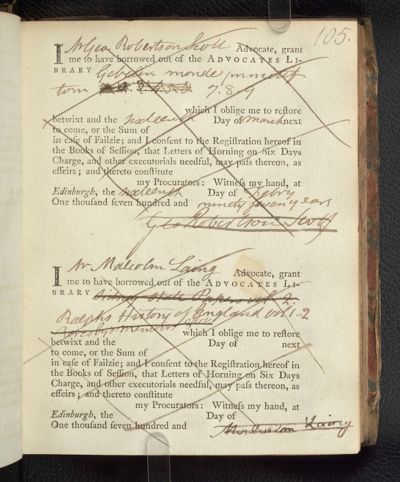 105.
I Mr Geo Robertson Scott Advocate, grant
me to have borrowed out of the ADVOCATES LI-
BRARY Gebelin monde primitif
tom 7. 8. 9
which I oblige me to reſtore
betwixt and the sixteenth Day of March next
to come, or the Sum of
in caſe of Failzie; and I conſent to the Regiſtration hereof in
the Books of Seſſion, that Letters of Horning on Six Days
Charge, and other executorials needful, may paſs thereon, as
effeirs; and thereto conſtitute
my Procurators: Witneſs my hand, at
Edinburgh, the sixteenth Day of Febry
One thouſand ſeven hundred and ninety seven years
Geo Robertson Scott
I Mr Malcolm Laing Advocate, grant
me to have borrowed out of the ADVOCATES LI-
BRARY Sidney State Papers vol 2.
Ralphs History of England vol. 1-2
which I oblige me to reſtore
betwixt and the Day of next
to come, or the Sum of
in caſe of Failzie; and I conſent to the Regiſtration hereof in
the Books of Seſſion, that Letters of Horning on Six Days
Charge, and other executorials needful, may paſs thereon, as
effeirs; and thereto conſtitute
my Procurators: Witneſs my hand, at
Edinburgh, the Day of
One thouſand ſeven hundred and
Malcolm Laing